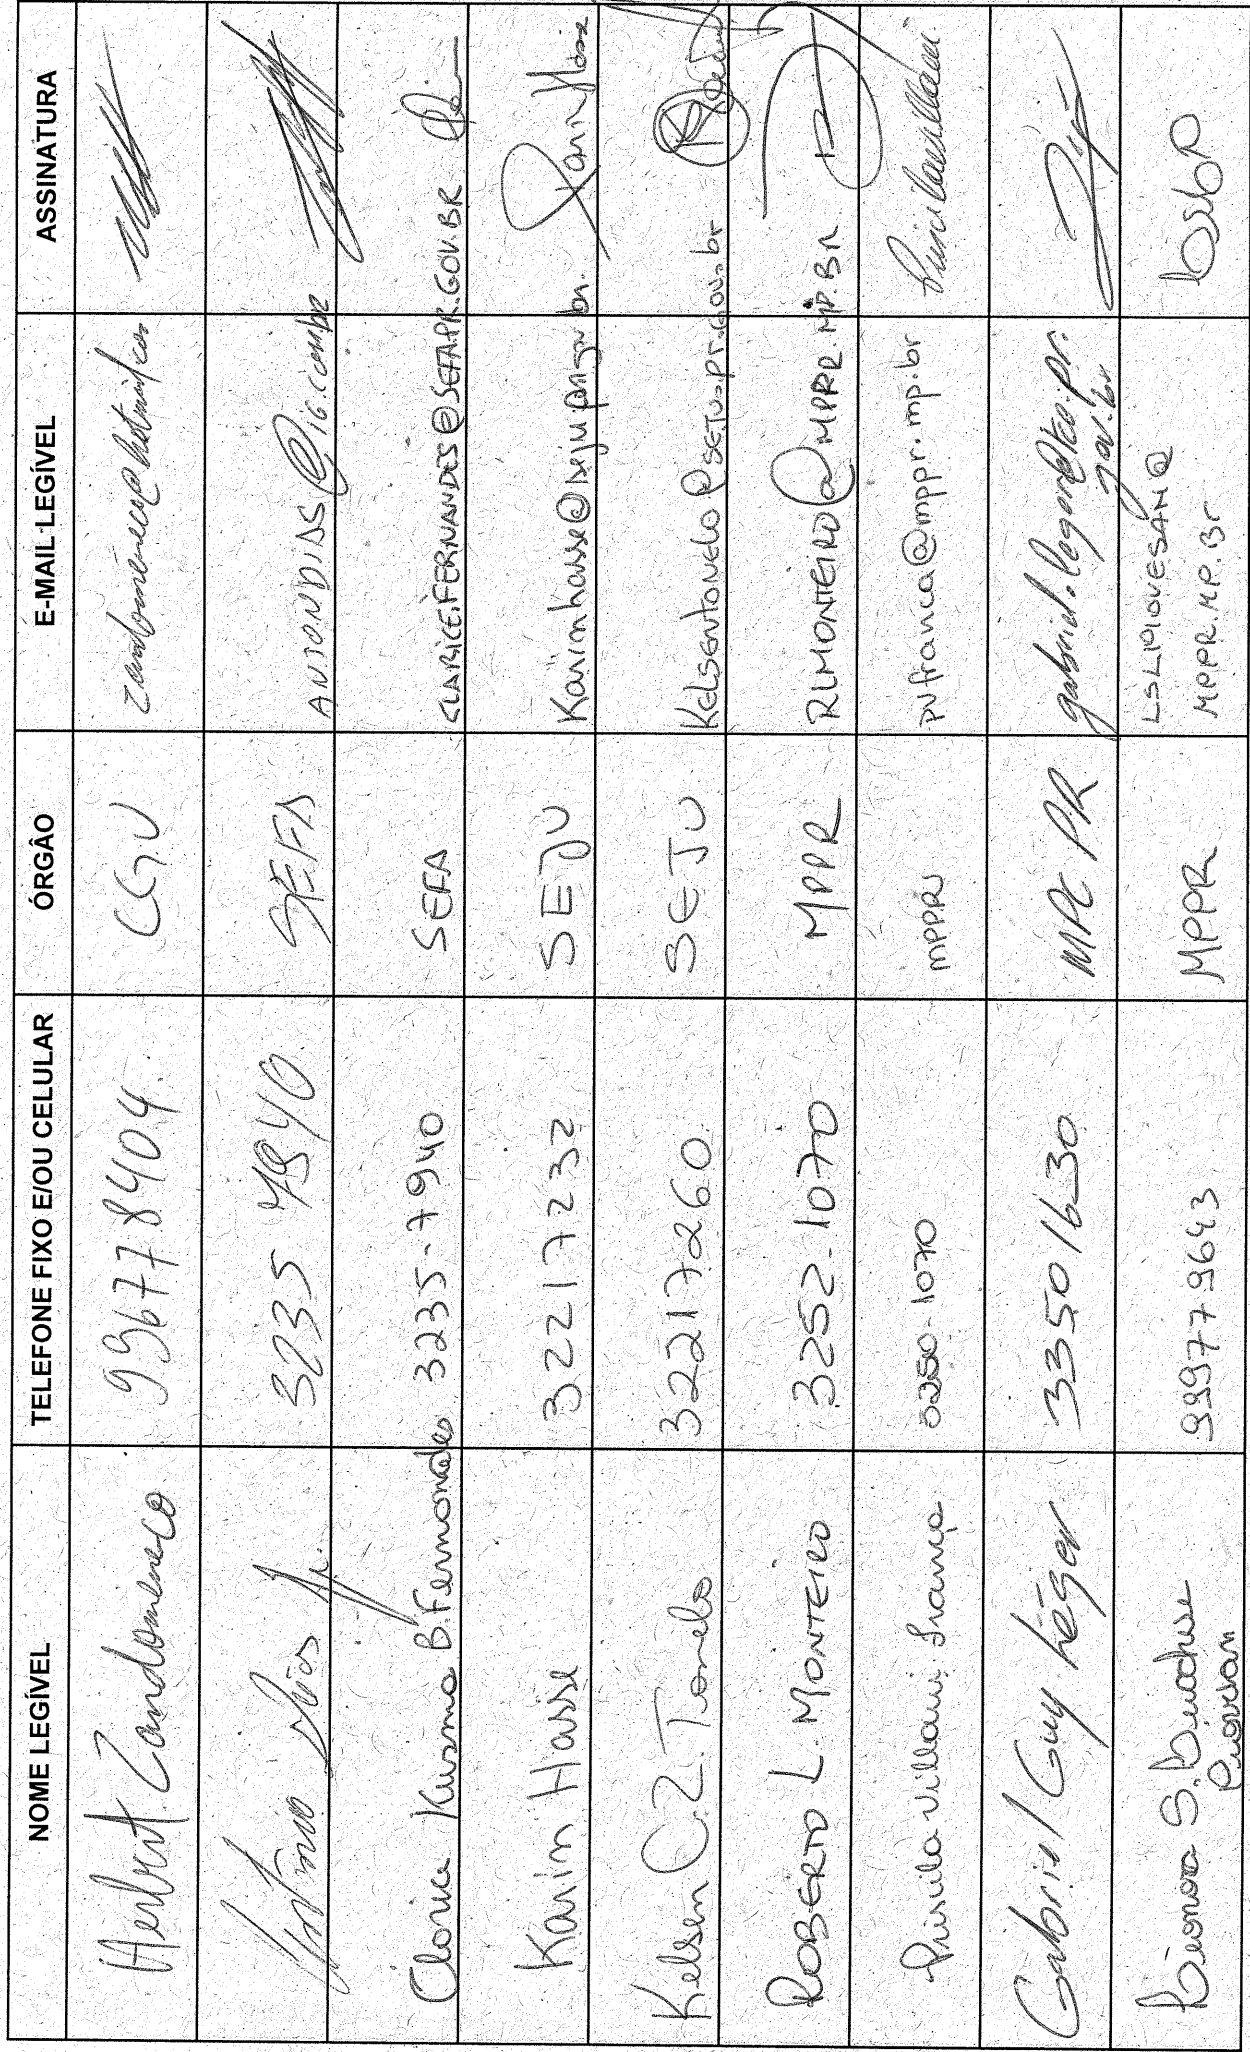 NOME LEGÍVEL TELEFONE FIXO E/OU CELULAR ÓRGÃO E-MAIL LEGÍVEL ASSINATURA
Herbert Zandomeneco 996778404 CGU zandomeneco@hotmail.com
Antonio Dias Jr. 3235 7940 SEFA ANTONDIAS@ig.com.br
Clarice Kusma B. Fernandes 3235-7940 SEFA CLARICE.FERNANDES@SEFA.PR.GOV.BR
Karin Hasse 32217232 SEJU Karinhasse@seju.pr.gov.br
Kelsen C.Z. Tonelo 32217260 SEJU Kelsentonelo@seju.pr.gov.br
ROBERTO L. MONTEIRO 3252-1070 MPPR RLMONTEIRO@MPPR.MP.BR
Priscila Villani França 3250-1070 MPPR pvfranca@mppr.mp.br
Gabriel Guy Léger 33501630 MPC PR gabriel.leger@tce.pr.
gov.br
S. 999779643 MPPR @
MPPR.MP.Br